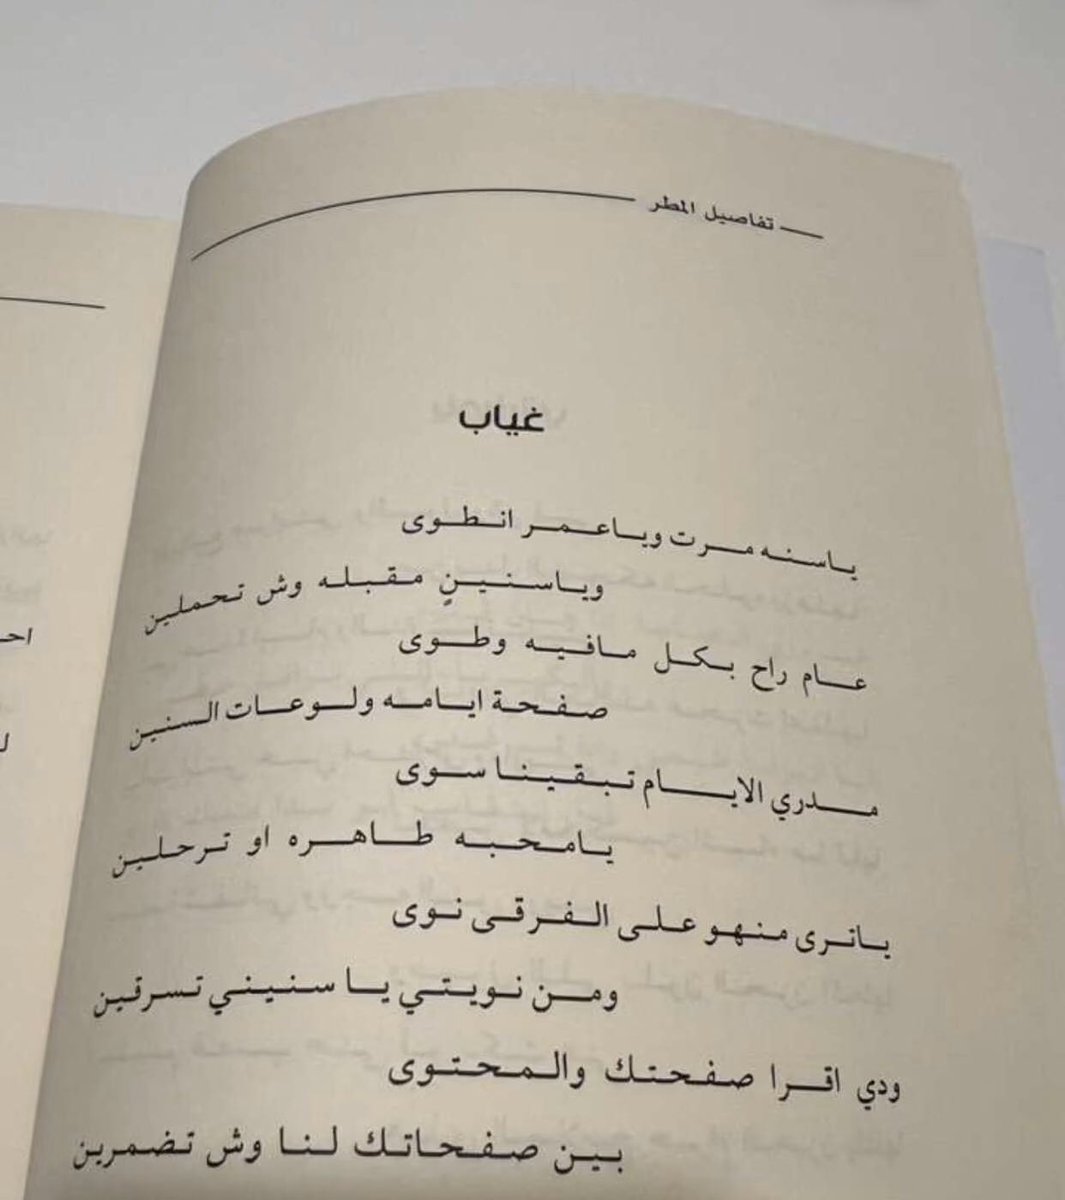 تفاصيل المطر
غياب
ياسنه مرت وياعمر انطوى
وياسنينٍ مقبله وش تحملين
عام راح بكل مافيه وطوى
صفحة ايامه ولوعات السنين
مدري الايام تبقينا سوى
يامحبه طاهره او ترحلين
ياترى منهو على الفرقى نوى
ومن نويتي يا سنيني تسرقين
ودي اقرا صفحتك والمحتوى
بين صفحاتك لنا وش تضمرين